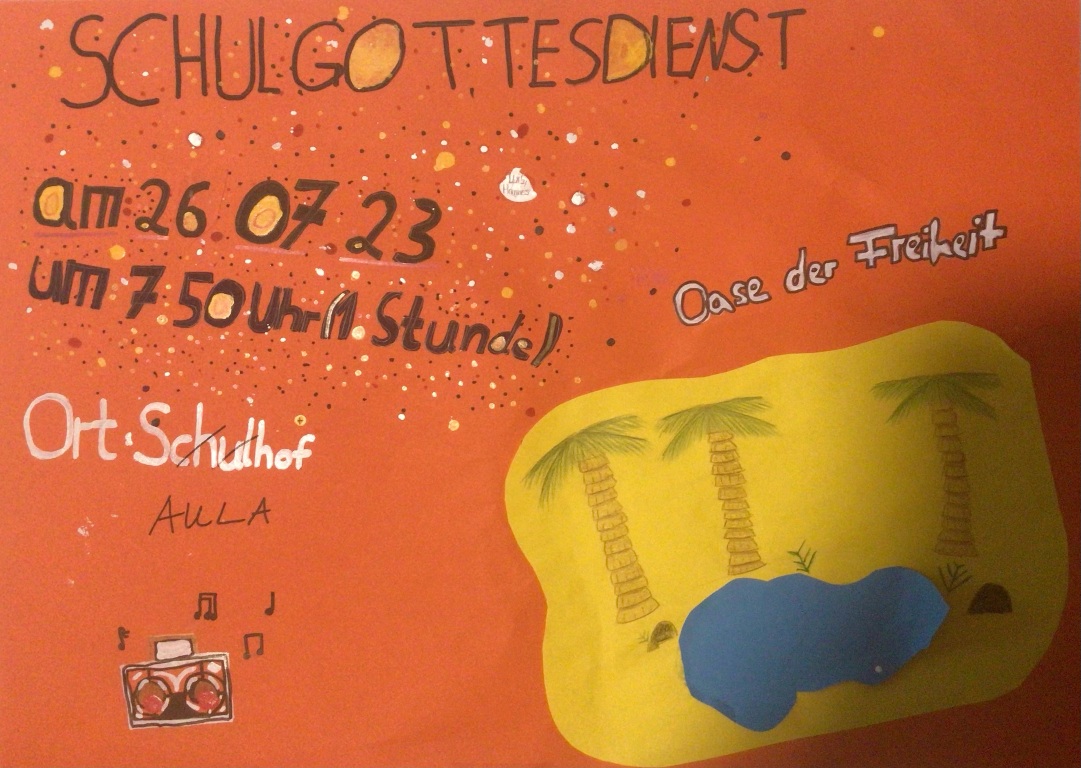 SCHULGOTTESDIENST
am 26.07.23
um 7.50 Uhr (1. Stunde)
Oase der Freiheit
Ort: Schulhof
AULA